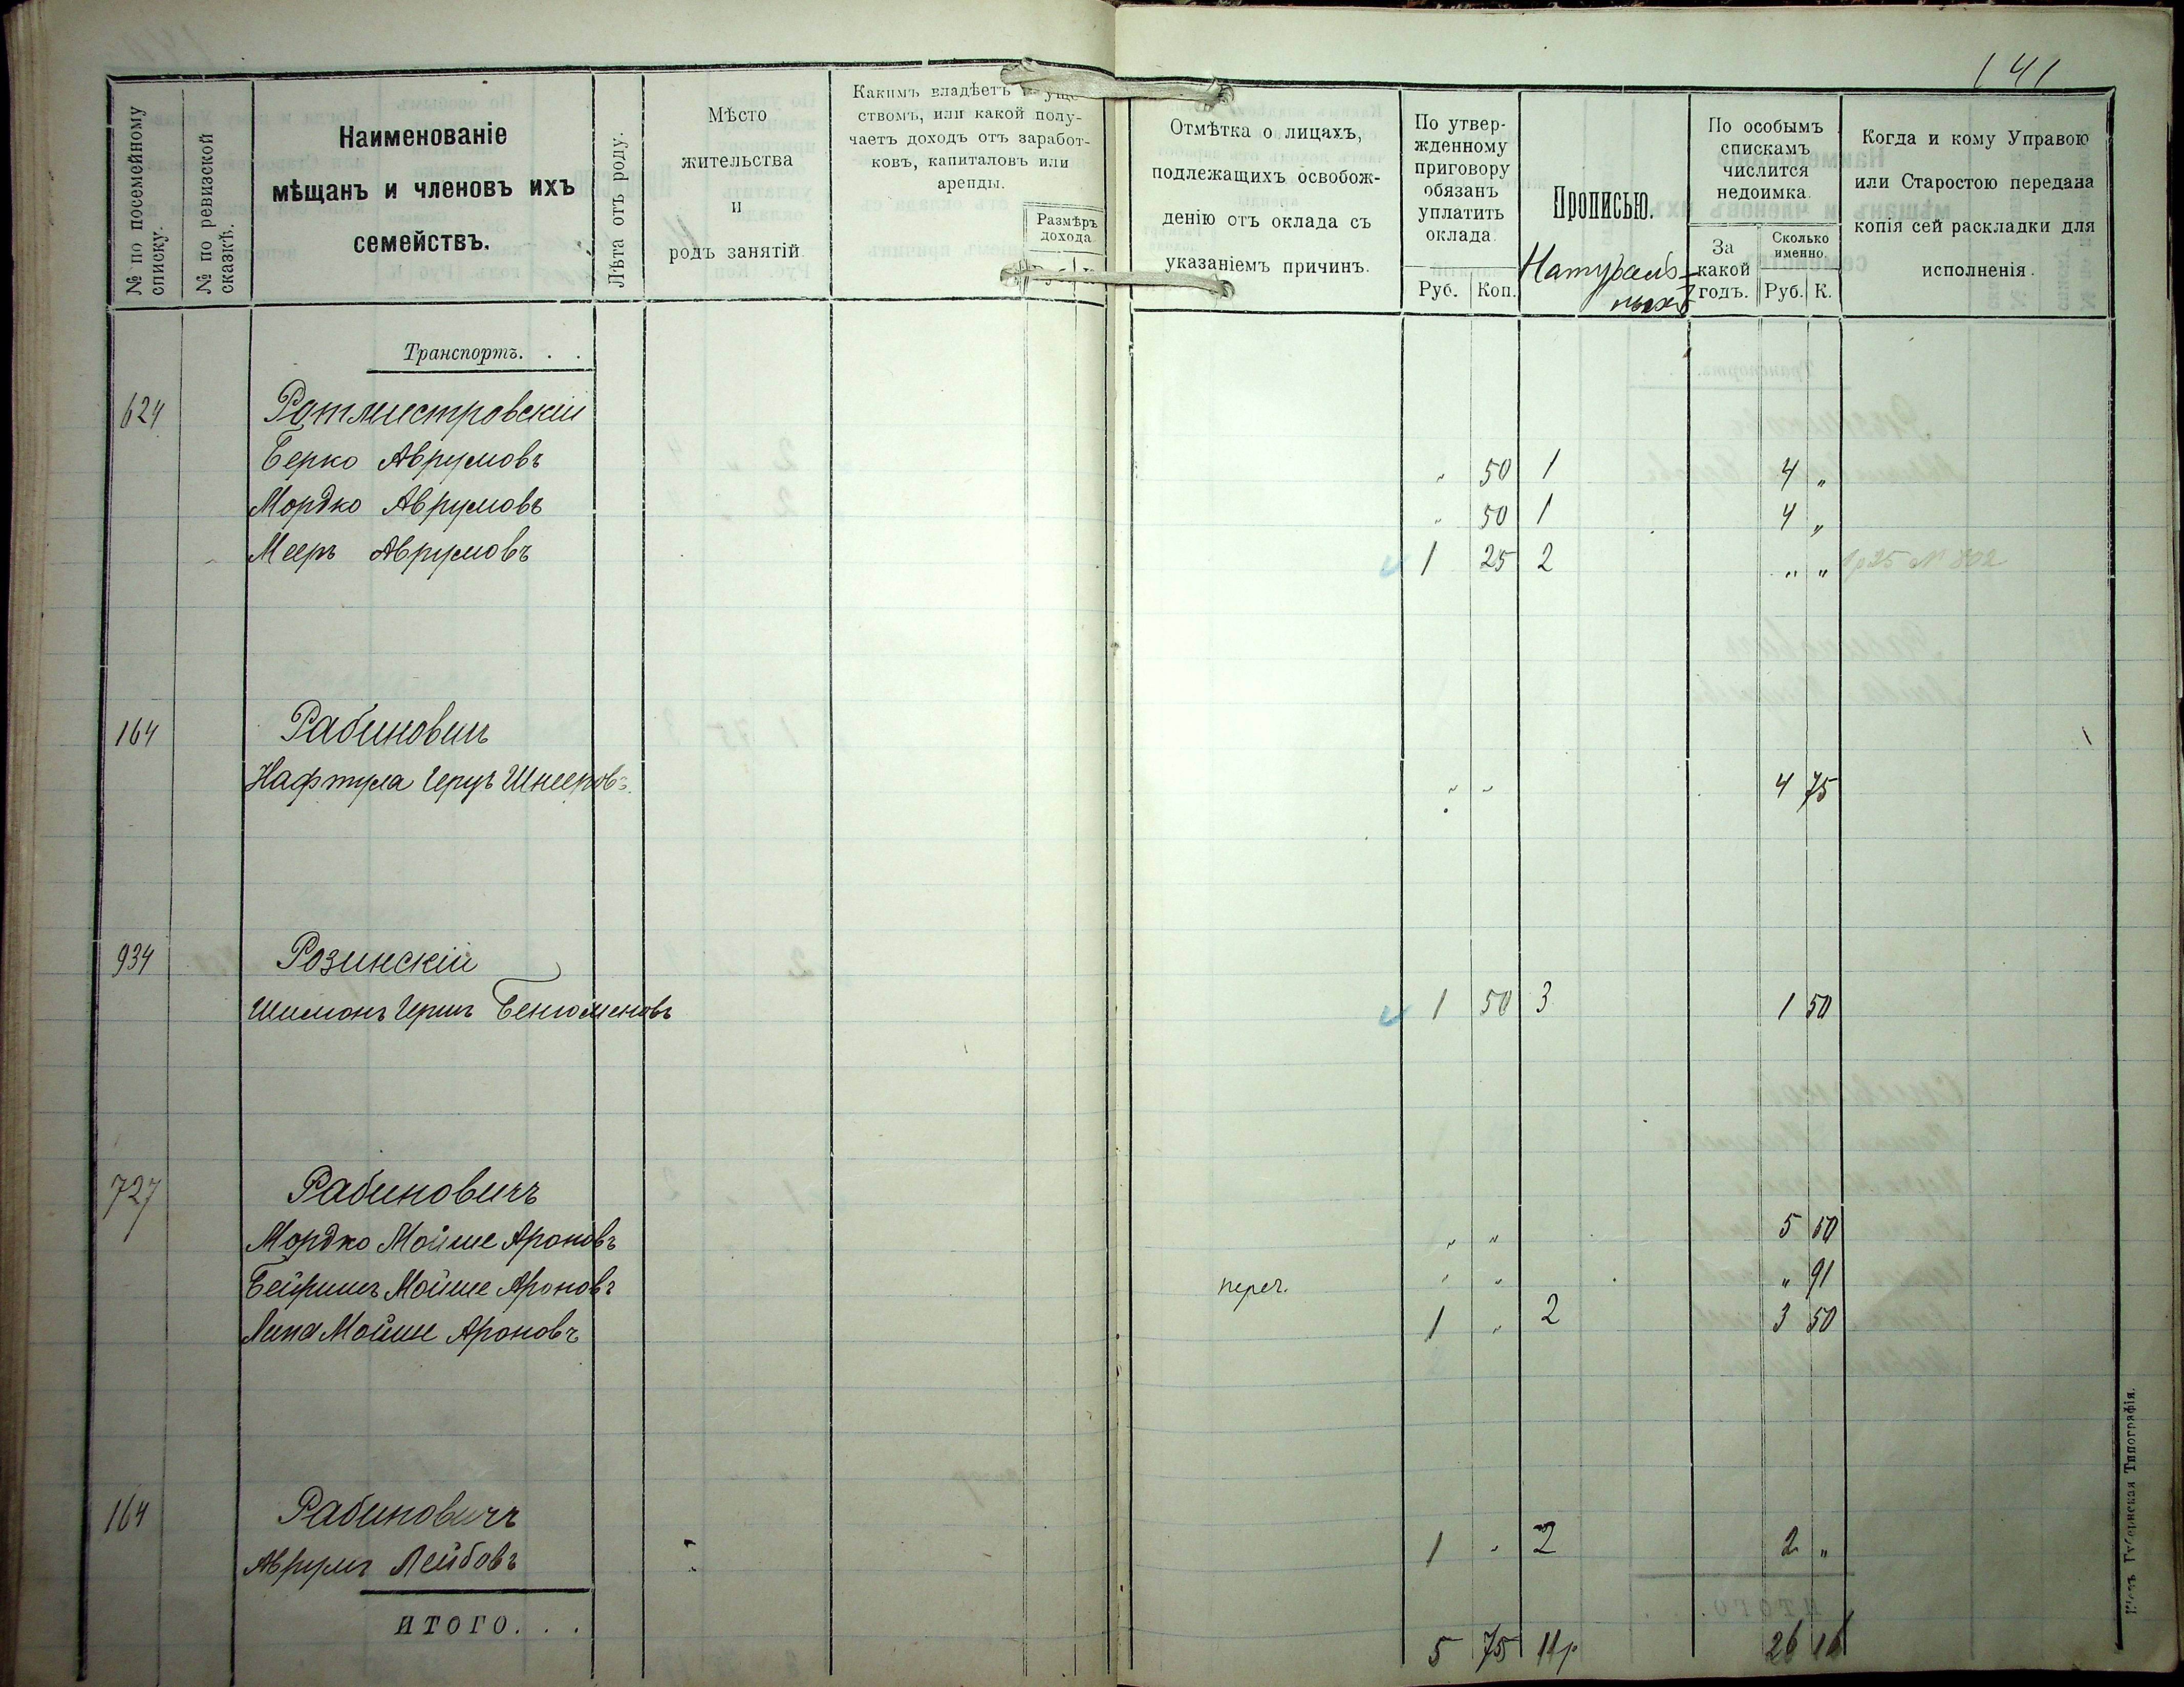 141
№ по посемейному списку.
№ по ревизской сказкѣ.
Наименованіе
мѣщанъ и членовъ ихъ
семействъ.
Лѣта отъ роду.
Мѣсто
жительства
и
родъ занятій.
Какимъ владѣетъ
ствомъ, или какой полу-
чаетъ доходъ отъ заработ-
ковъ, капиталовъ или
аренды.
Размѣръ
дохода
Отмѣтка о лицахъ,
подлежащихъ освобож-
денію отъ оклада съ
указаніемъ причинъ.
По утвер-
жденному
приговору
обязанъ
уплатить
оклада
Руб. Коп.
Прописью.
Натураль-
ныхъ
По особымъ
спискамъ
числится
недоимка.
За
какой
годъ.
Сколько
именно.
Руб. К.
Когда и кому Управою
или Старостою передана
копія сей раскладки для
исполненія.
Транспортъ. . .
624 Ратмистровскій
Берко Аврумовъ " 50 1 4 "
Мордко Аврумовъ " 50 1 4 "
Мееръ Аврумовъ 1 25 2 " " 1р25 № 802
164 Рабинович
Нафтула Герцъ Шнееровъ. " " 4 75
934 Розинскій
Шимонъ Герш Бенюменовъ 1 50 3 1 50
727 Рабиновичъ
Мордко Мойше Ароновъ " " 5 50
Бейришъ Мойше Ароновъ переч. " " " 91
Липа Мойше Ароновъ 1 " 2 3 50
164 Рабиновичъ
Аврумъ Лейбовъ 1 " 2 2 "
итого. . . 5 75 11р 26 16
Кіевъ Губернская Типографія.